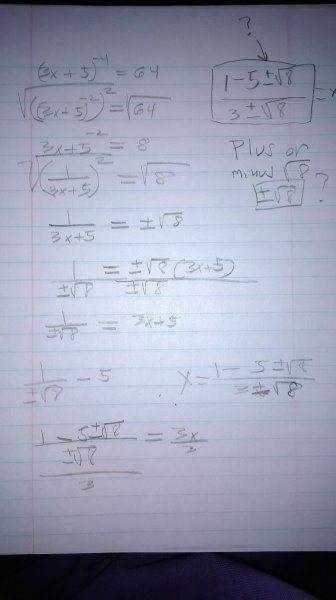 (3x+5)^-4 = 64
√((3x+5)^-2)^2 = √64
3x+5^-2 = 8
√(1/(3x+5))^2 = √8
1/(3x+5) = ±√8
1/±√8 = ±√8(3x+5)/±√8
1/±√8 = 3x+5
1/±√8 - 5
(1 - 5±√8)/±√8 / 3 = 3x/3
?
(1-5±√8)/(3±√8) = x
Plus or
minus √8
±√8 ?
x = (1 - 5±√8)/(3±√8)